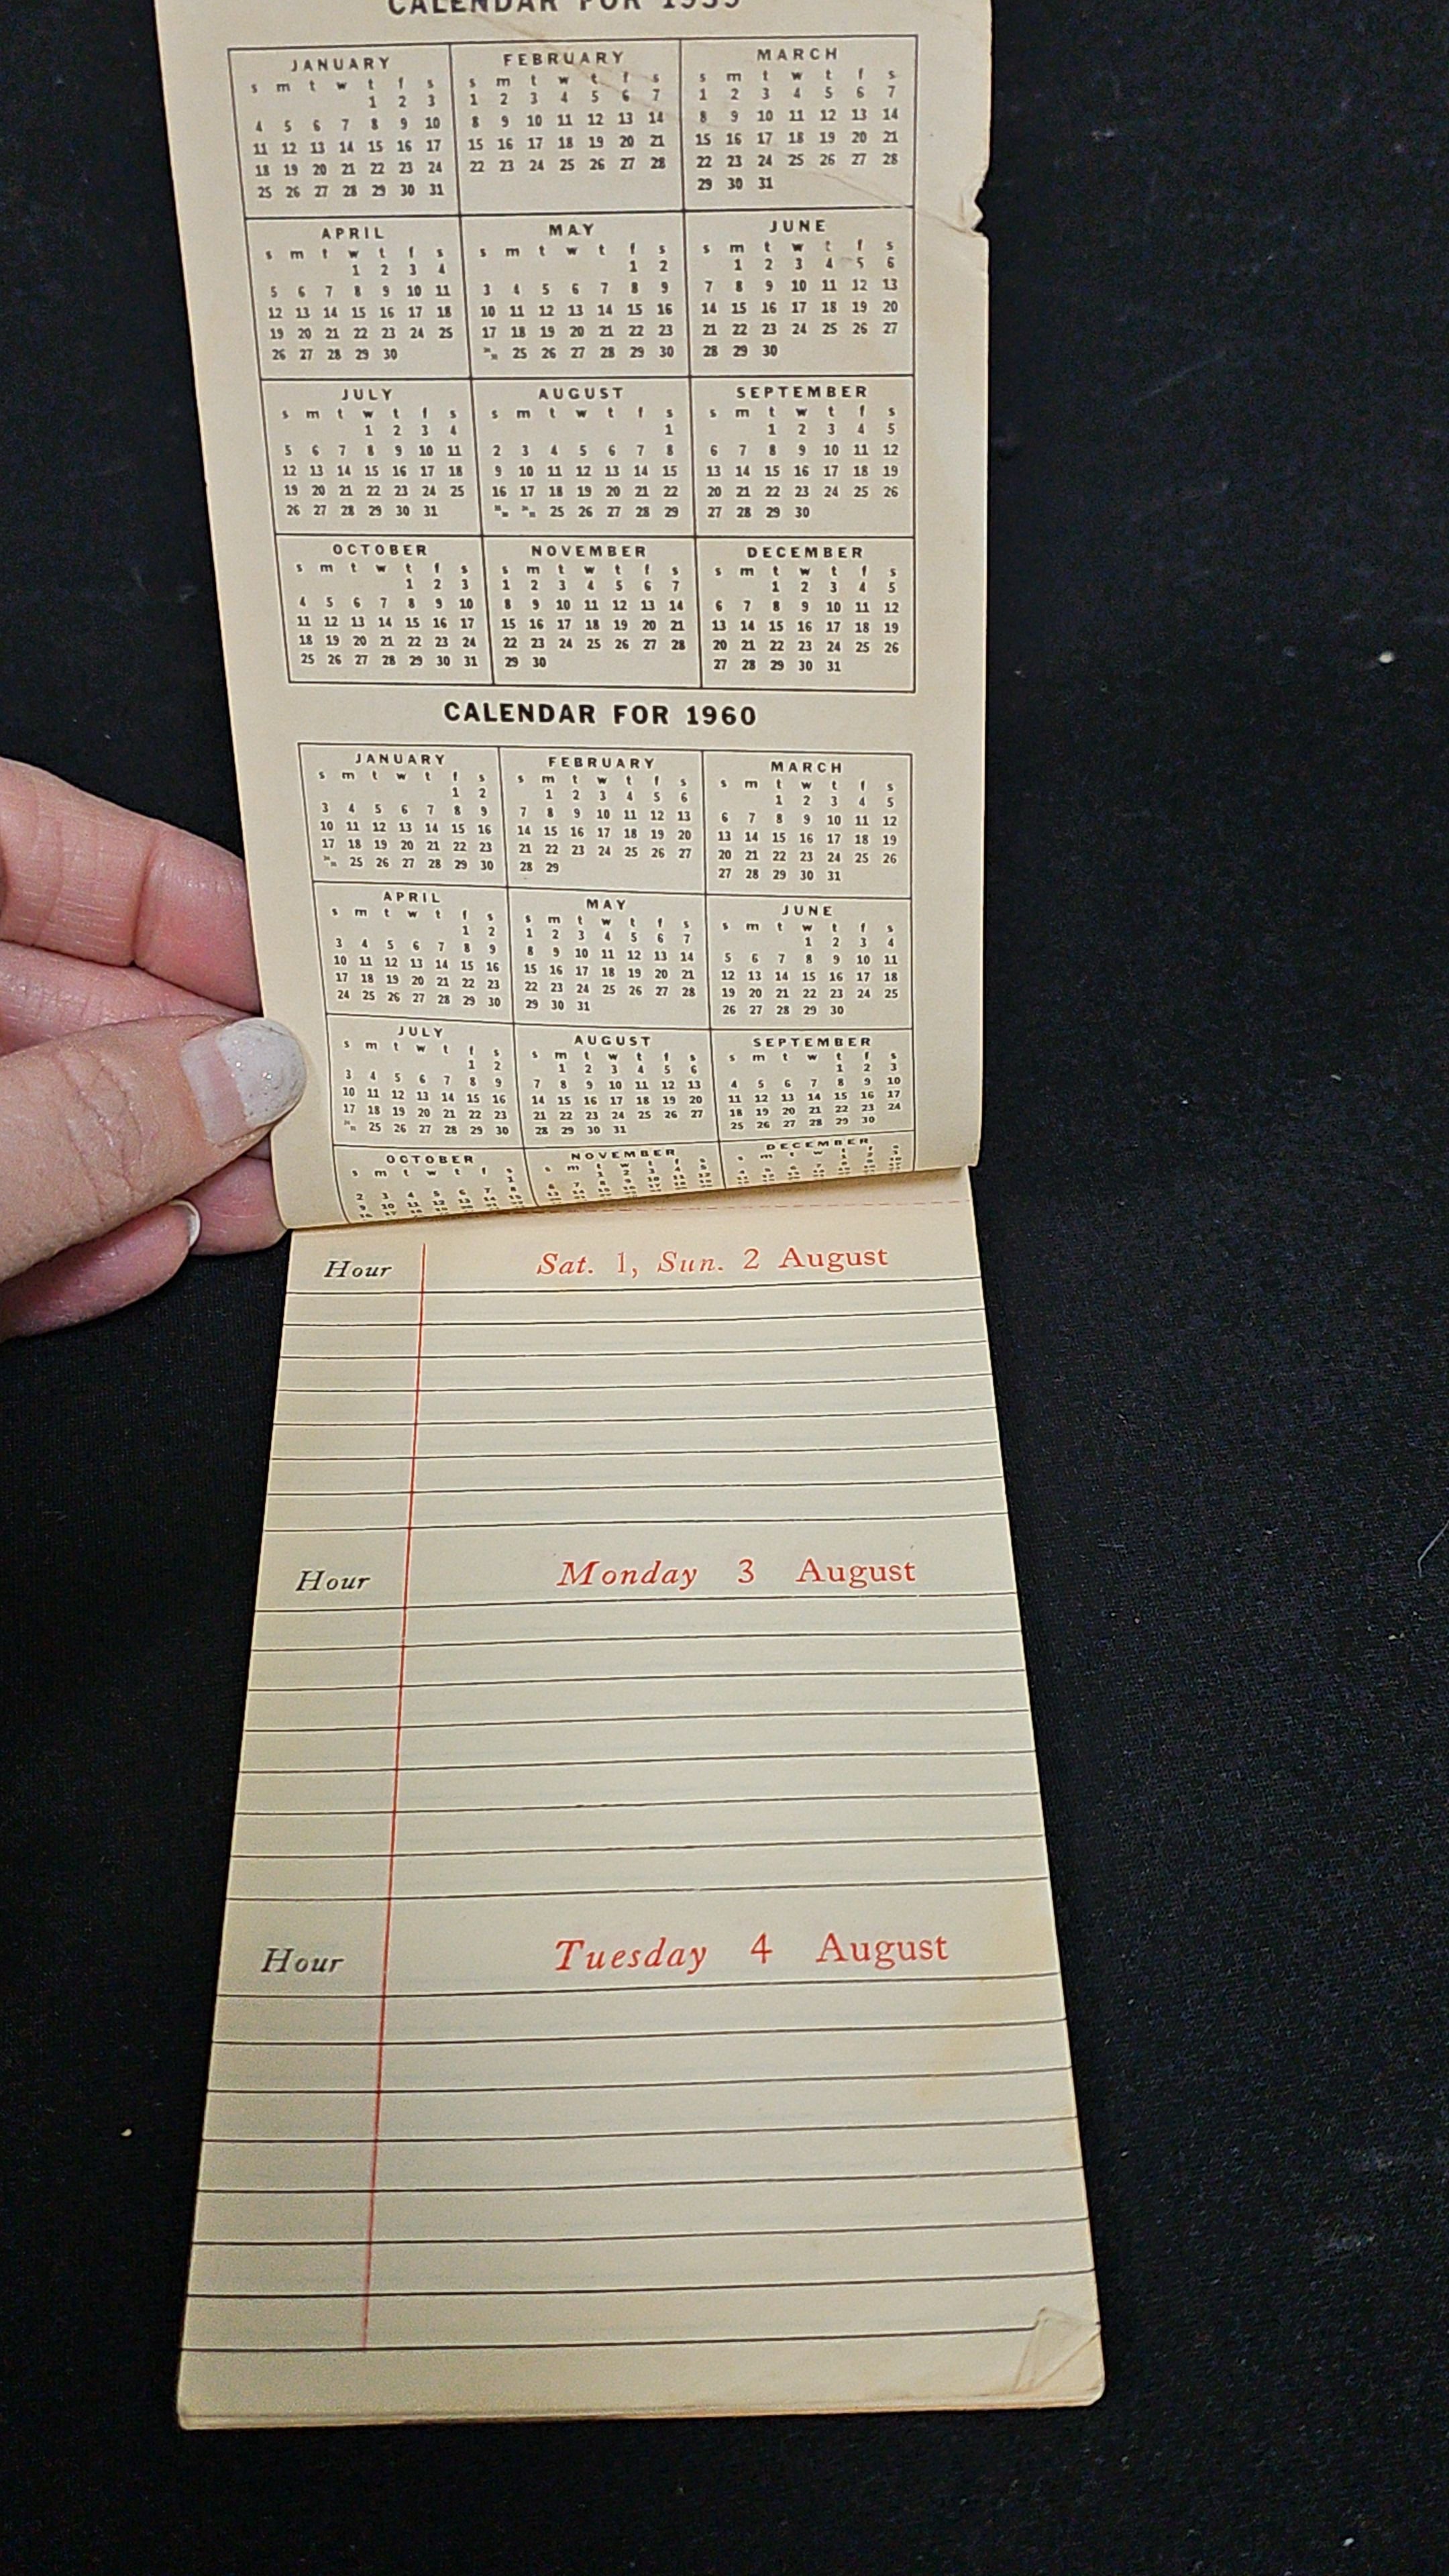 CALENDAR FOR 1959
JANUARY FEBRUARY MARCH
s m t w t f s s m t w t f s s m t w t f s
1 2 3 1 2 3 4 5 6 7 1 2 3 4 5 6 7
4 5 6 7 8 9 10 8 9 10 11 12 13 14 8 9 10 11 12 13 14
11 12 13 14 15 16 17 15 16 17 18 19 20 21 15 16 17 18 19 20 21
18 19 20 21 22 23 24 22 23 24 25 26 27 28 22 23 24 25 26 27 28
25 26 27 28 29 30 31 29 30 31
APRIL MAY JUNE
s m t w t f s s m t w t f s s m t w t f s
1 2 3 4 1 2 1 2 3 4 5 6
5 6 7 8 9 10 11 3 4 5 6 7 8 9 7 8 9 10 11 12 13
12 13 14 15 16 17 18 10 11 12 13 14 15 16 14 15 16 17 18 19 20
19 20 21 22 23 24 25 17 18 19 20 21 22 23 21 22 23 24 25 26 27
26 27 28 29 30 25 26 27 28 29 30 28 29 30
JULY AUGUST SEPTEMBER
s m t w t f s s m t w t f s s m t w t f s
1 2 3 4 1 1 2 3 4 5
5 6 7 8 9 10 11 2 3 4 5 6 7 8 6 7 8 9 10 11 12
12 13 14 15 16 17 18 9 10 11 12 13 14 15 13 14 15 16 17 18 19
19 20 21 22 23 24 25 16 17 18 19 20 21 22 20 21 22 23 24 25 26
26 27 28 29 30 31 25 26 27 28 29 27 28 29 30
OCTOBER NOVEMBER DECEMBER
s m t w t f s s m t w t f s s m t w t f s
1 2 3 1 2 3 4 5 6 7 1 2 3 4 5
4 5 6 7 8 9 10 8 9 10 11 12 13 14 6 7 8 9 10 11 12
11 12 13 14 15 16 17 15 16 17 18 19 20 21 13 14 15 16 17 18 19
18 19 20 21 22 23 24 22 23 24 25 26 27 28 20 21 22 23 24 25 26
25 26 27 28 29 30 31 29 30 27 28 29 30 31
CALENDAR FOR 1960
JANUARY FEBRUARY MARCH
s m t w t f s s m t w t f s s m t w t f s
1 2 1 2 3 4 5 6 1 2 3 4 5
3 4 5 6 7 8 9 7 8 9 10 11 12 13 6 7 8 9 10 11 12
10 11 12 13 14 15 16 14 15 16 17 18 19 20 13 14 15 16 17 18 19
17 18 19 20 21 22 23 21 22 23 24 25 26 27 20 21 22 23 24 25 26
25 26 27 28 29 30 28 29 27 28 29 30 31
APRIL MAY JUNE
s m t w t f s s m t w t f s s m t w t f s
1 2 1 2 3 4 5 6 7 1 2 3 4
3 4 5 6 7 8 9 8 9 10 11 12 13 14 5 6 7 8 9 10 11
10 11 12 13 14 15 16 15 16 17 18 19 20 21 12 13 14 15 16 17 18
17 18 19 20 21 22 23 22 23 24 25 26 27 28 19 20 21 22 23 24 25
24 25 26 27 28 29 30 29 30 31 26 27 28 29 30
JULY AUGUST SEPTEMBER
s m t w t f s s m t w t f s s m t w t f s
1 2 1 2 3 4 5 6 1 2 3
3 4 5 6 7 8 9 7 8 9 10 11 12 13 4 5 6 7 8 9 10
10 11 12 13 14 15 16 14 15 16 17 18 19 20 11 12 13 14 15 16 17
17 18 19 20 21 22 23 21 22 23 24 25 26 27 18 19 20 21 22 23 24
25 26 27 28 29 30 28 29 30 31 25 26 27 28 29 30
OCTOBER NOVEMBER DECEMBER
s m t w t f s s m t w t f s s m t
1 1 2 3 4 5
2 3 4 5 6 7 8
9 10 11 12 13 14 15
Hour Sat. 1, Sun. 2 August
Hour Monday 3 August
Hour Tuesday 4 August